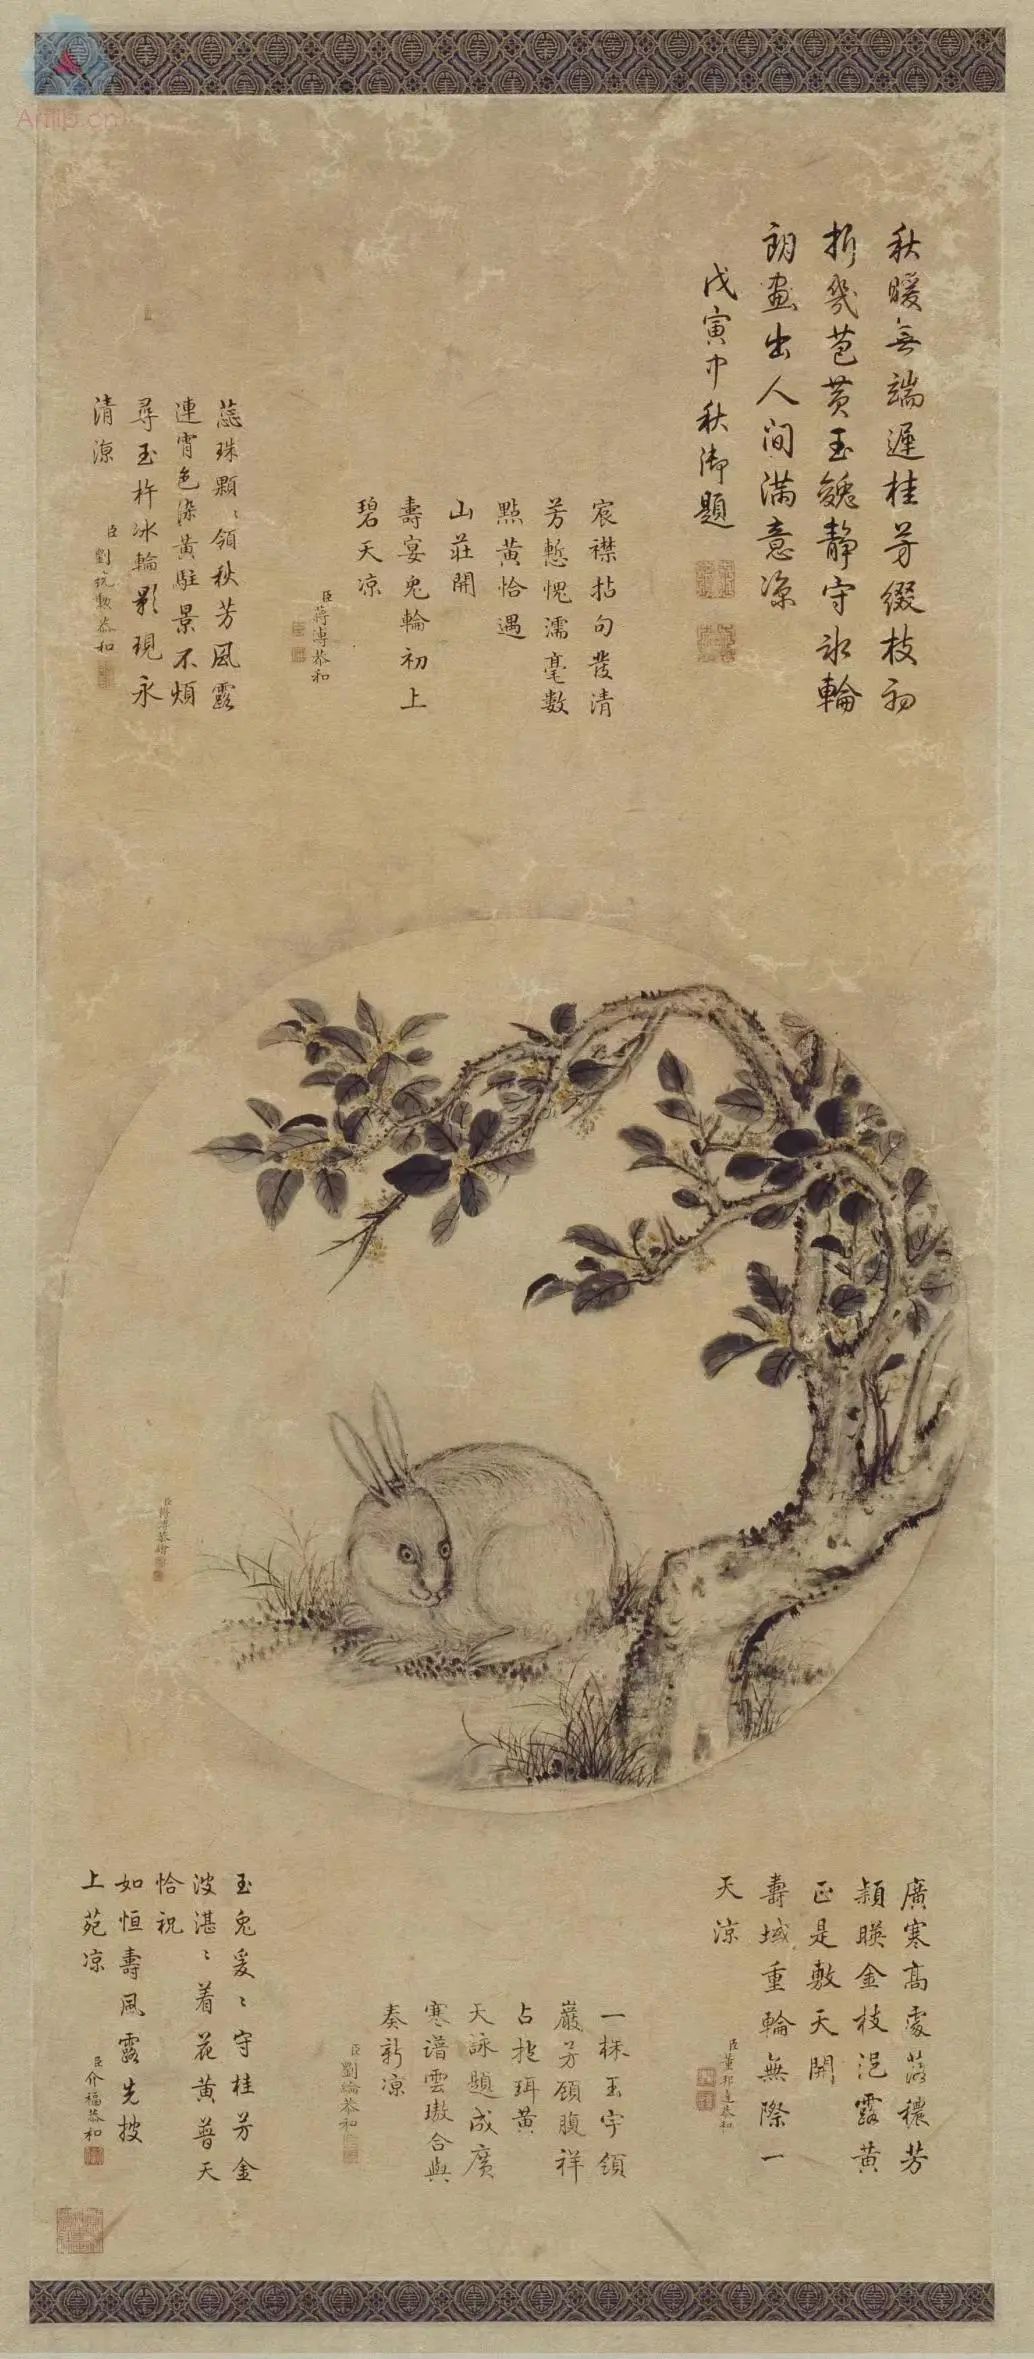 Artlip.cn
秋暖無端遲桂芳綴枝初
折幾苞黃玉兔靜守冰輪
朗畫出人间滿意凉
戊寅中秋御題
宸襟拈句發清
芳慙愧濡毫數
點黃恰遇
山莊開
壽宴兔輪初上
碧天凉
臣蔣溥恭和
蕊珠顆〻領秋芳風露
連霄色染黃駐景不煩
尋玉杵冰輪影現永
清凉
臣劉統勲恭和
臣蔣溥恭繪
廣寒高處蕩穠芳
穎暎金枝浥露黃
正是敷天開
壽域重輪無際一
天凉
臣董邦達恭和
一株玉宇領
巖芳顧腹祥
占抱珥黃
天詠題成廣
寒譜雲璈合與
奏新凉
臣劉綸恭和
玉兔爰〻守桂芳金
波湛〻着花黃普天
恰祝
如恒壽風露先披
上苑凉
臣介福恭和